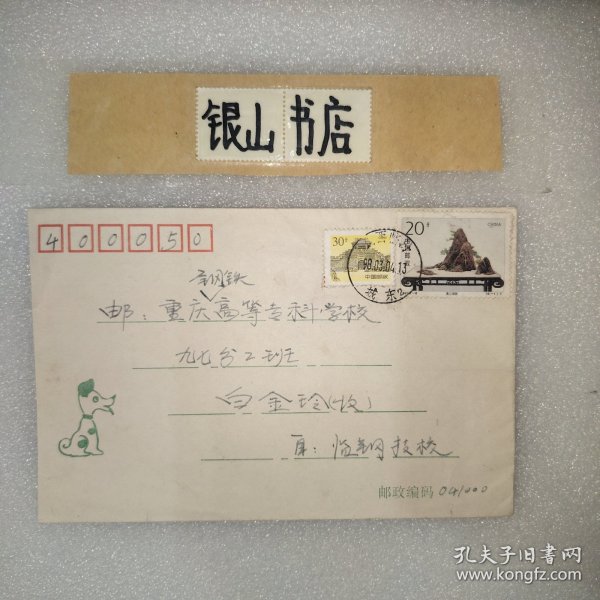 银山书店
400050
30分
中国邮政
20分
CHINA
98.03.04.13
钢铁
邮：重庆高等专科学校
九七分2班
白金玲(收)
临钢技校
邮政编码 041000
孔夫子旧书网
www.kongfz.com